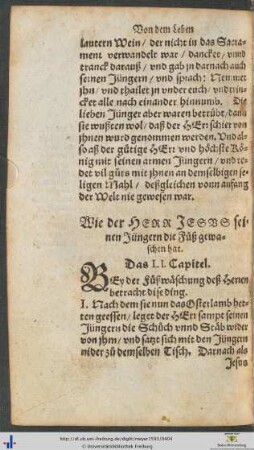 Von dem Leben
lautern Wein / der nicht in das Sacra-
ment verwandelt war / dancket / vnd
tranck darauß / vnd gab jn darnach auch
seinen Jüngern / vnd sprach: Nemmet
jhn / vnd thailet jn vnder euch / vnd trin-
cket alle nach einander hinnumb. Die
lieben Jünger aber waren betrübt / dann
sie wußten wol / daß der HErr schier von
jhnen wurd genommen werden. Vnd al-
so aß der gütige HErr vnd höchste Kö-
nig mit seinen armen Jüngern / vnd re-
det vil güts mit jhnen an demselbigen se-
ligen Mahl / deßgleichen vonn anfang
der Welt nie gewesen war.
Wie der HERR JESVS sei-
nen Jüngern die Füß gewa-
schen hat.
Das LI. Capitel.
BEy der Füßwäschung deß Herren
betracht dise ding.
I. Nach dem sie nun das Osterlamb het-
ten geessen / leget der HErr sampt seinen
Jüngern die Schüch vnnd Stäb wider
von jhm / vnd satzt sich mit den Jüngern
nider zů demselben Tisch. Darnach als
Jesus
http://dl.ub.uni-freiburg.de/diglit/meyer1593/0404
© Universitätsbibliothek Freiburg